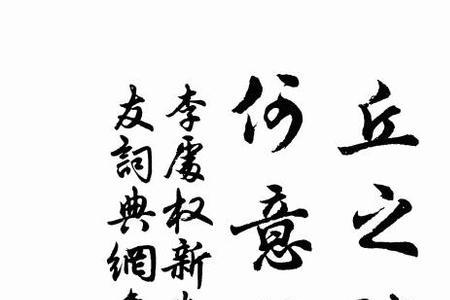 丘之
何意
李處权新
友詞典網